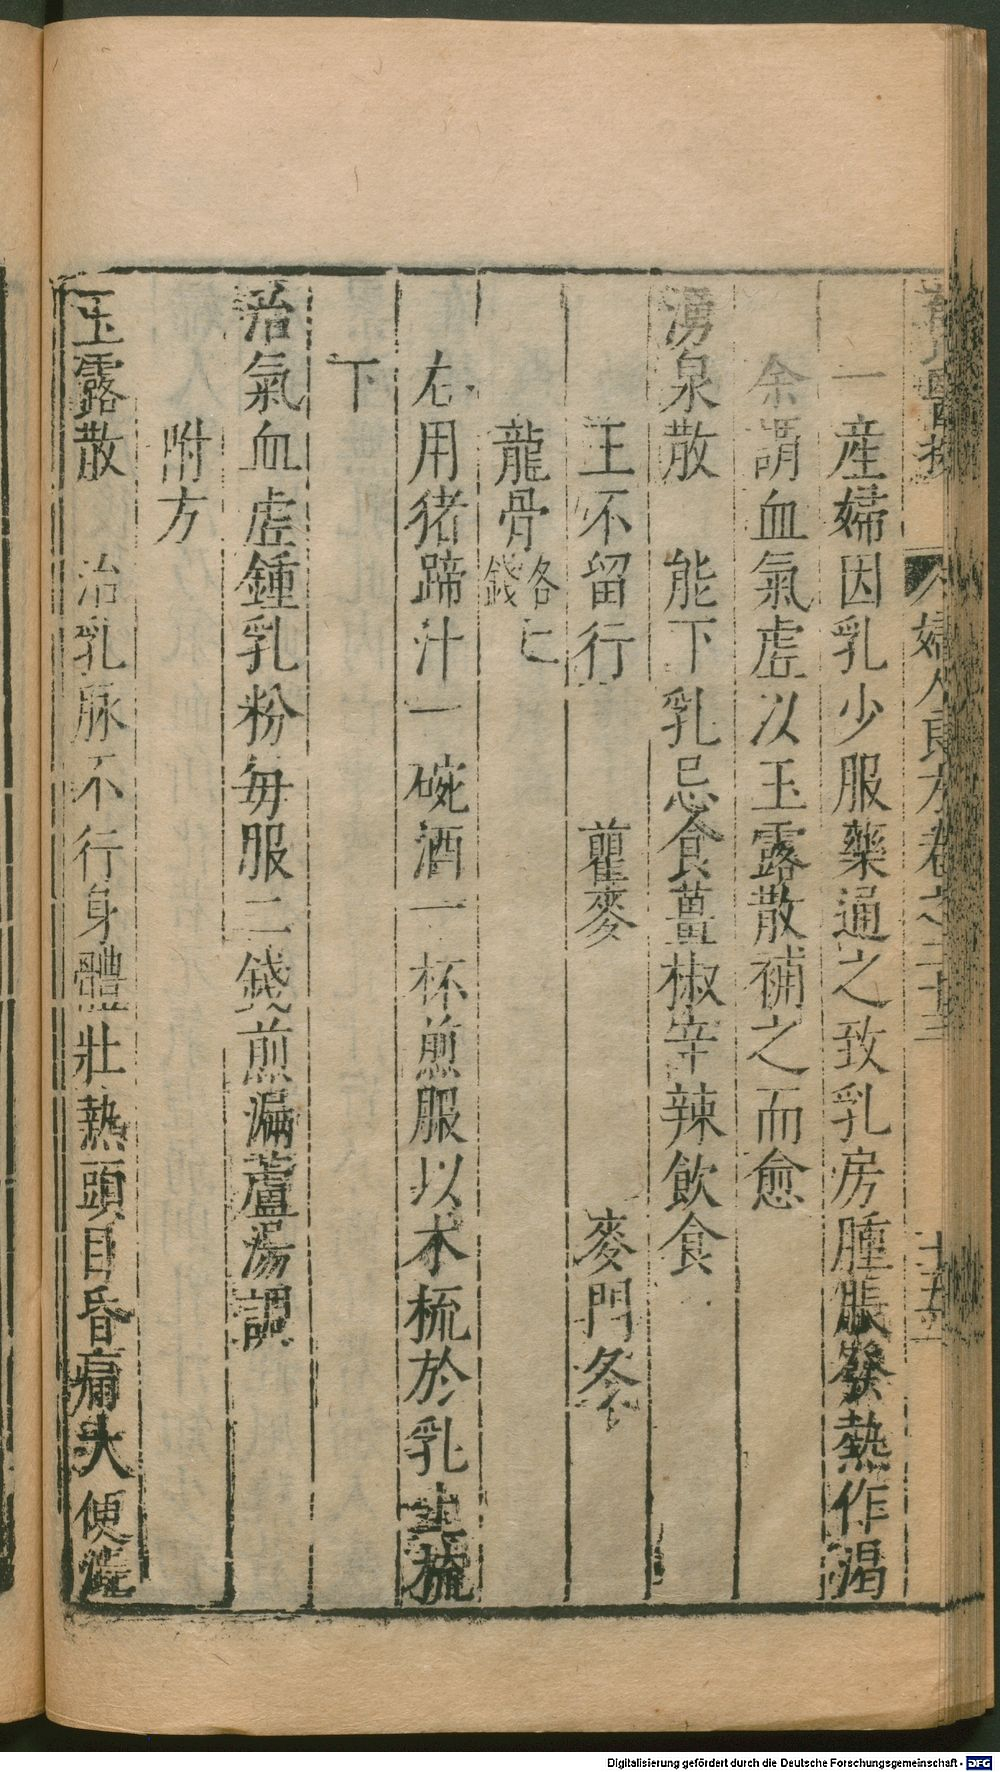 婦人良方卷之二十三
一產婦因乳少服藥通之致乳房腫脹發熱作渴
余謂血氣虛以玉露散補之而愈
湧泉散　能下乳忌食薑椒辛辣飲食
王不留行　瞿麥　麥門冬
龍骨各七錢
右用猪蹄汁一碗酒一杯煎服以木梳於乳上梳
下
治氣血虛鍾乳粉每服二錢煎漏蘆湯調
附方
玉露散　治乳脉不行身體壯熱頭目昏痛大便澁
Digitalisierung gefördert durch die Deutsche Forschungsgemeinschaft - DFG